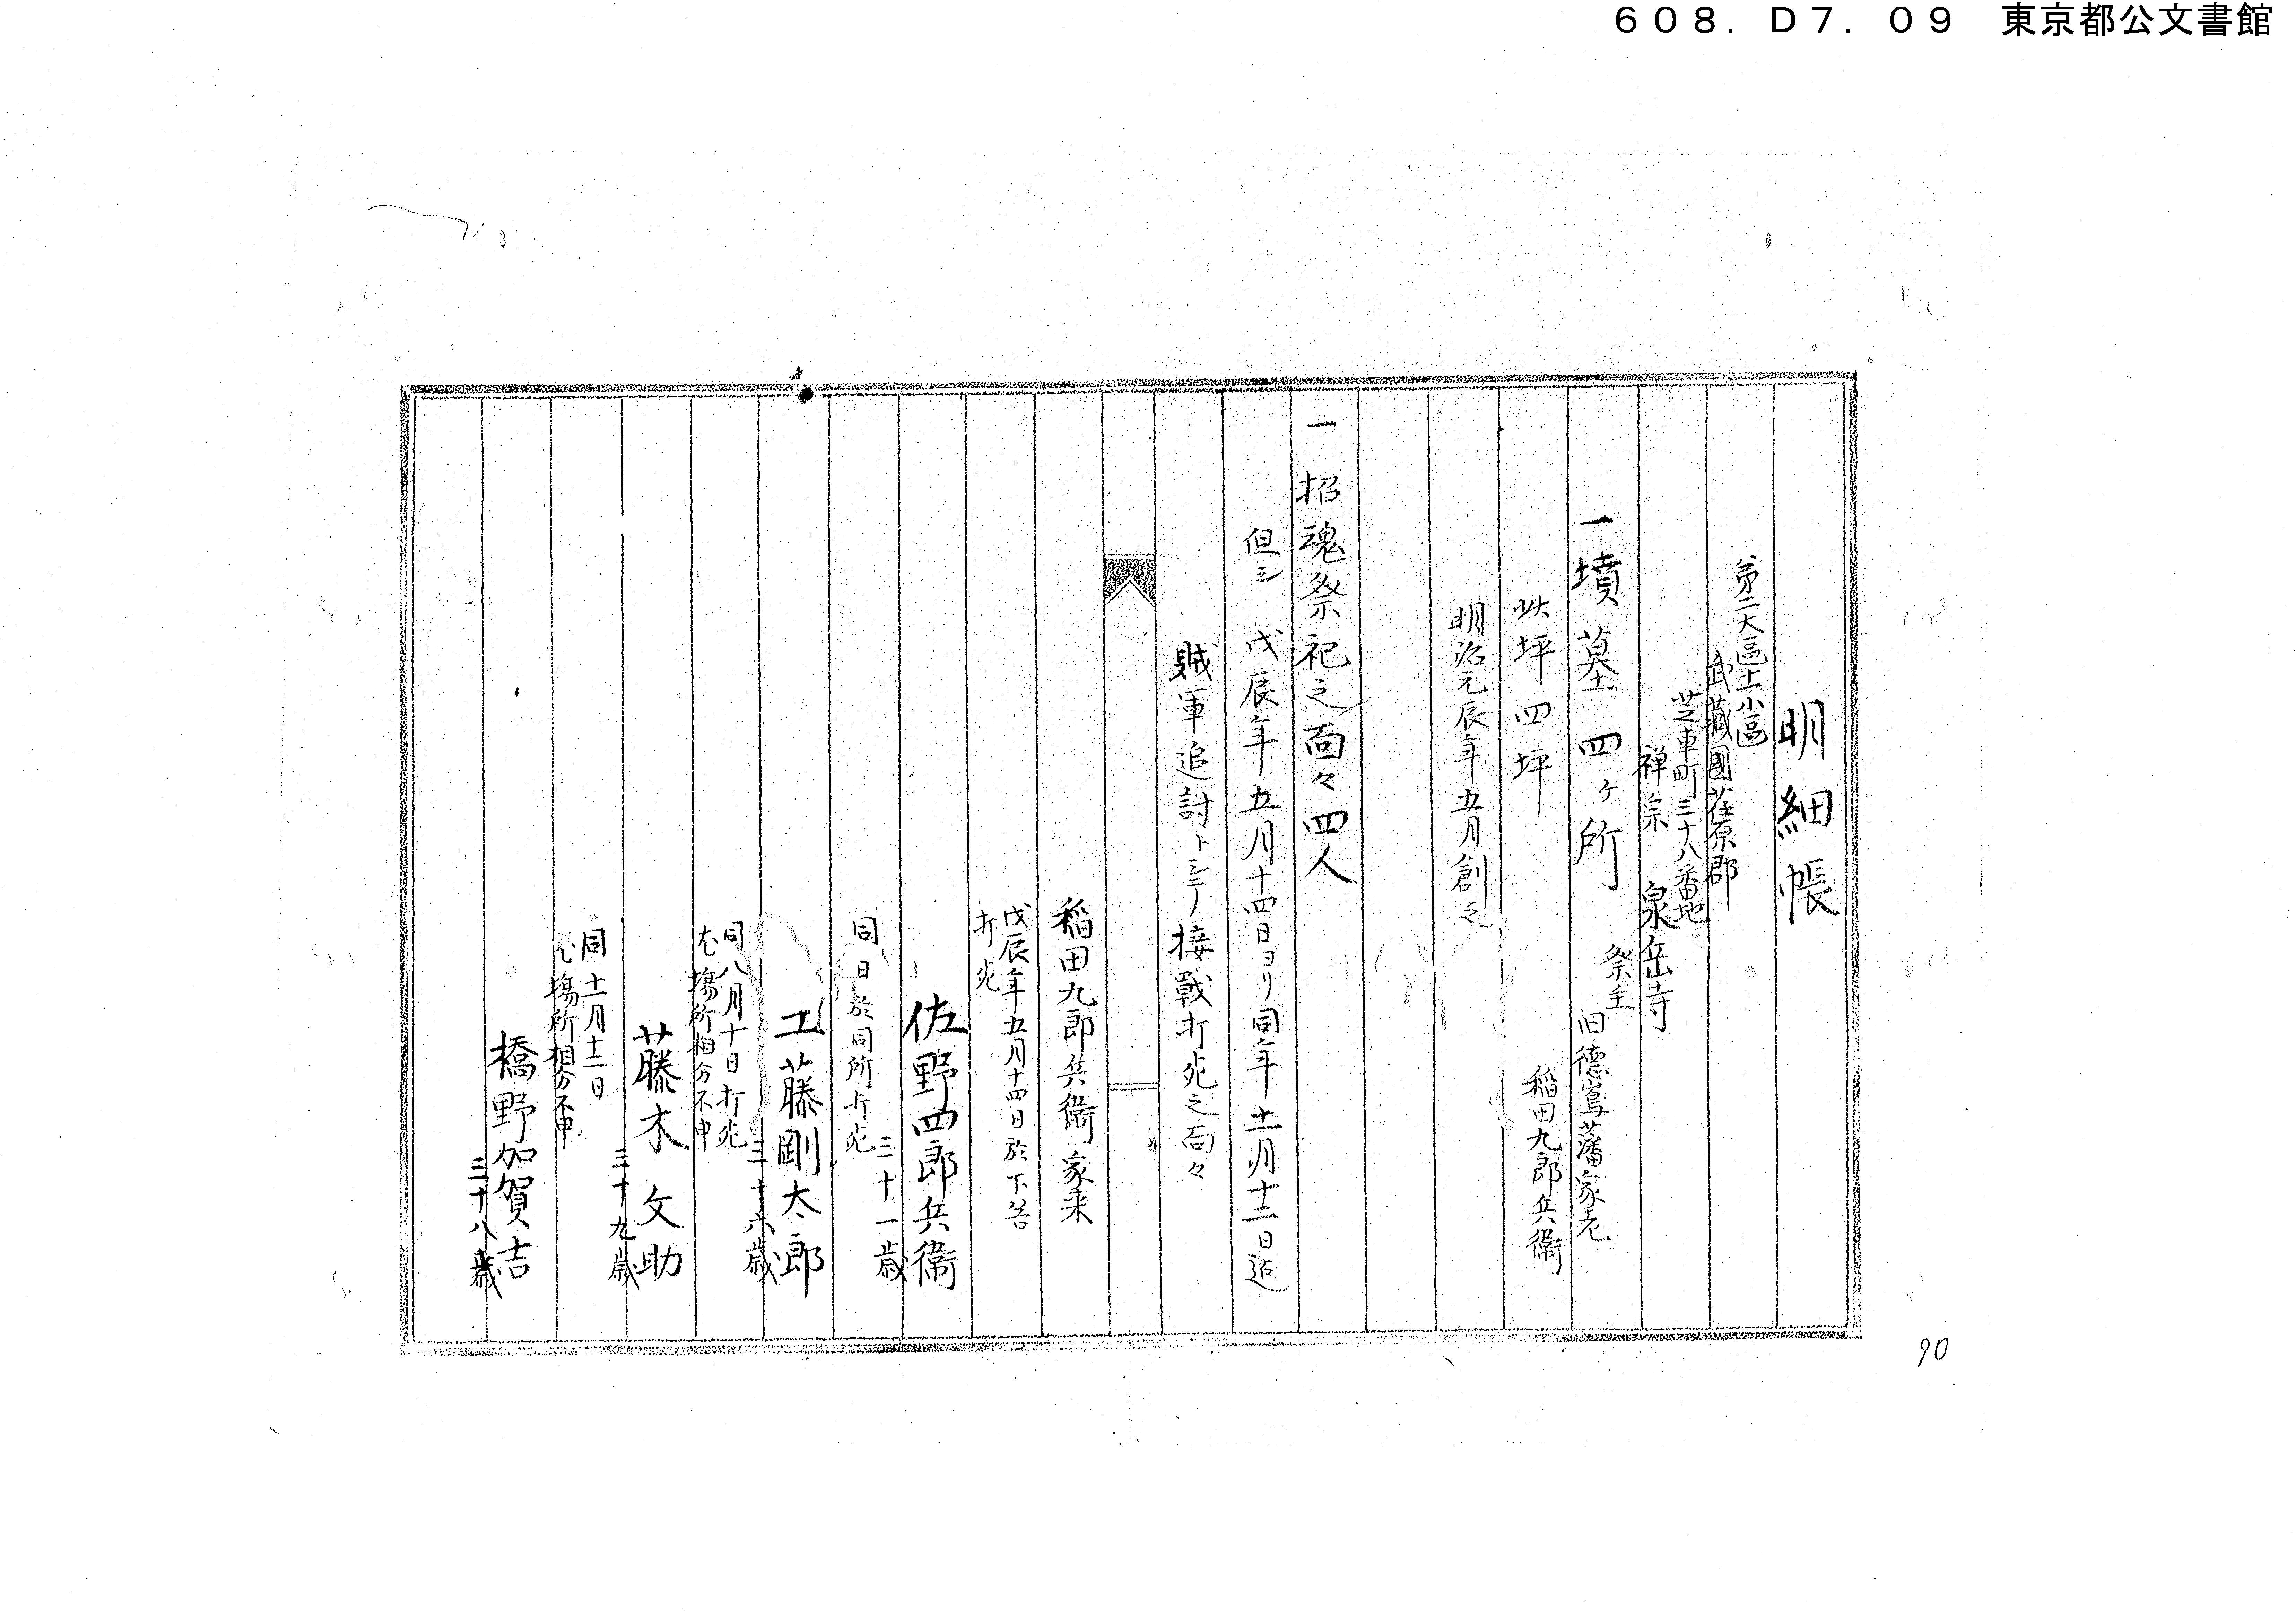 608. D7. 09 東京都公文書館
明細帳
第二大區十一小區
武藏國荏原郡
芝車町三十八番地
禅宗 泉岳寺
祭主
一墳墓四ヶ所
旧德嶌藩家老
稲田九郎兵衞
此坪四坪
明治元辰年五月創之
一招魂祭祀之面々四人
但シ 戊辰年五月十四日ヨリ同年十一月十二日迄
賊軍追討トシテ接戰打死之面々
稲田九郎兵衞家来
戊辰年五月十四日於下谷
打死
佐野四郎兵衞
三十一歳
同日於同所打死
工藤剛太郎
三十六歳
同八月十日打死
尤場所相分不申
藤木文助
三十九歳
同十一月十二日
尤場所相分不申
橋野加賀吉
三十八歳
90